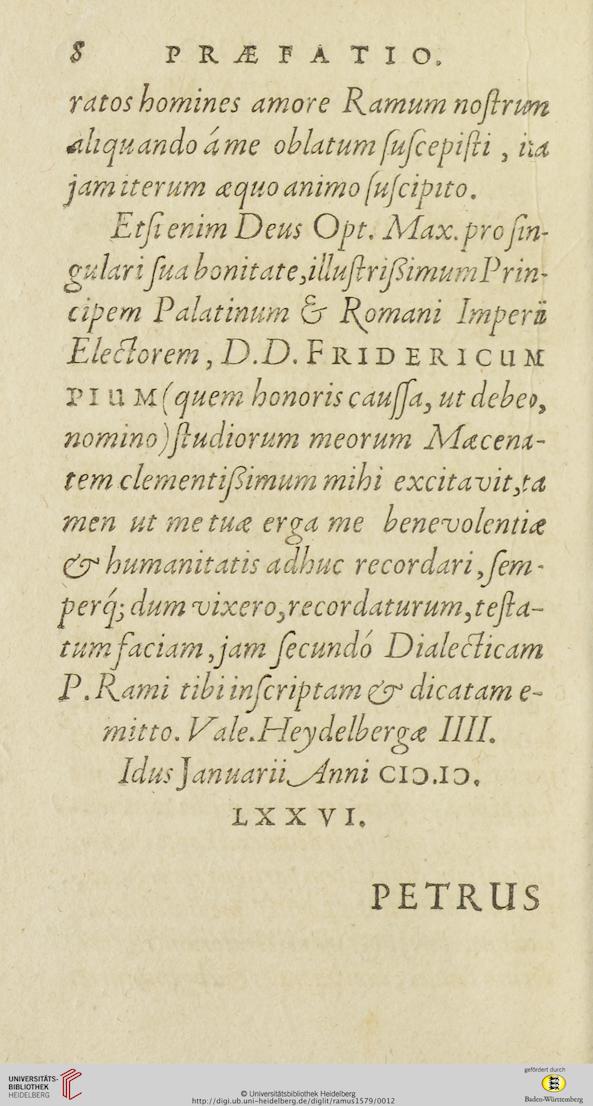 8 PRÆFATIO.
ratos homines amore Ramum noſtrum
aliquando á me oblatum ſuſcepiſti, ita
jam iterum æquo animo ſuſcipito.
Etſi enim Deus Opt. Max. pro ſin-
gulari ſua bonitate, illuſtriſsimum Prin-
cipem Palatinum & Romani Imperii
Electorem, D.D. FRIDERICUM
PIUM (quem honoris cauſſa, ut debeo,
nomino) ſtudiorum meorum Mæcena-
tem clementiſsimum mihi excitavit, ta
men ut me tuæ erga me benevolentiæ
& humanitatis adhuc recordari, ſem-
perq́; dum vixero, recordaturum, teſta-
tum faciam, jam ſecundó Dialecticam
P. Rami tibi inſcriptam & dicatam e-
mitto. Vale. Heydelbergæ IIII.
Idus Januarii Anni CIƆ.IƆ.
LXXVI.
PETRUS
UNIVERSITÄTS-
BIBLIOTHEK
HEIDELBERG
© Universitätsbibliothek Heidelberg
http://digi.ub.uni-heidelberg.de/diglit/ramus1579/0012
gefördert durch
Baden-Württemberg